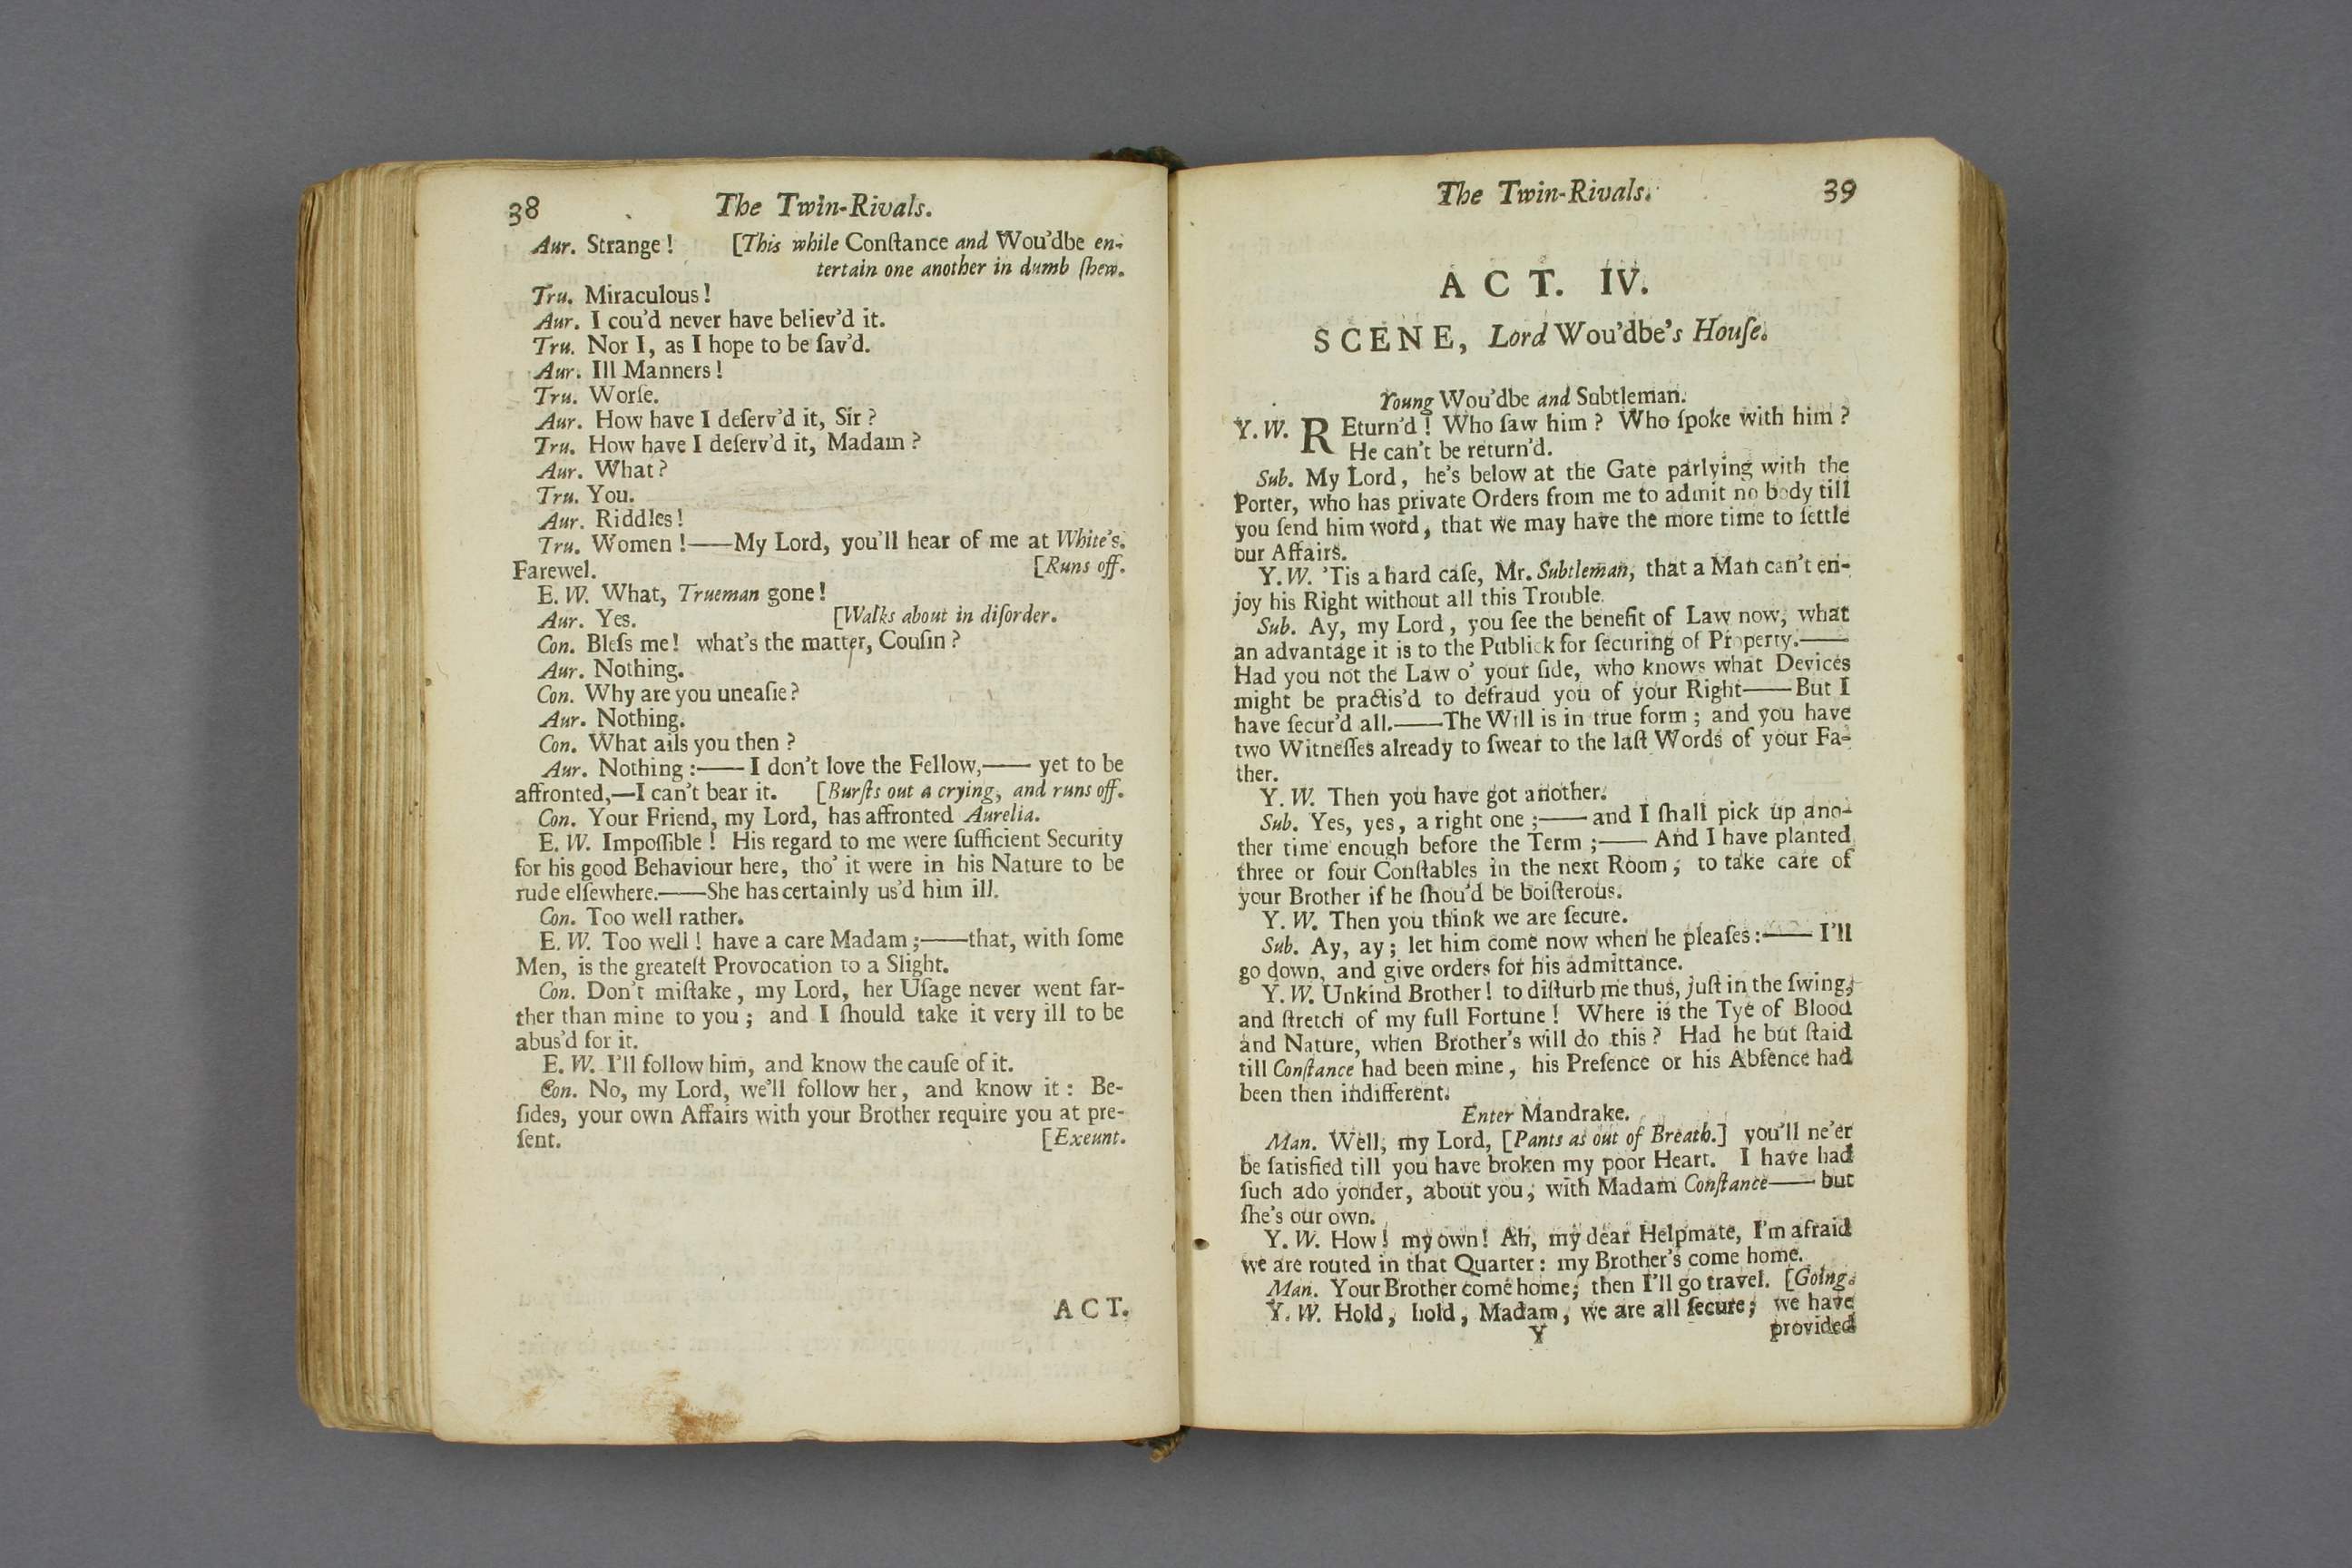 38 The Twin-Rivals.
Aur. Strange! [This while Conſtance and Wou'dbe en-
tertain one another in dumb ſhew.
Tru. Miraculous!
Aur. I cou'd never have believ'd it.
Tru. Nor I, as I hope to be ſav'd.
Aur. Ill Manners!
Tru. Worſe.
Aur. How have I deſerv'd it, Sir?
Tru. How have I deſerv'd it, Madam?
Aur. What?
Tru. You.
Aur. Riddles!
Tru. Women!——My Lord, you'll hear of me at White's.
Farewel. [Runs off.
E. W. What, Trueman gone!
Aur. Yes. [Walks about in diſorder.
Con. Bleſs me! what's the matter, Couſin?
Aur. Nothing.
Con. Why are you uneaſie?
Aur. Nothing.
Con. What ails you then?
Aur. Nothing:——I don't love the Fellow,——yet to be
affronted,—I can't bear it. [Burſts out a crying, and runs off.
Con. Your Friend, my Lord, has affronted Aurelia.
E. W. Impoſſible! His regard to me were ſufficient Security
for his good Behaviour here, tho' it were in his Nature to be
rude elſewhere.——She has certainly us'd him ill.
Con. Too well rather.
E. W. Too well! have a care Madam;——that, with ſome
Men, is the greateſt Provocation to a Slight.
Con. Don't miſtake, my Lord, her Uſage never went far-
ther than mine to you; and I ſhould take it very ill to be
abus'd for it.
E. W. I'll follow him, and know the cauſe of it.
Con. No, my Lord, we'll follow her, and know it: Be-
ſides, your own Affairs with your Brother require you at pre-
ſent. [Exeunt.
ACT.
The Twin-Rivals. 39
ACT. IV.
SCENE, Lord Wou'dbe's Houſe.
Young Wou'dbe and Subtleman.
Y. W. REturn'd! Who ſaw him? Who ſpoke with him?
He can't be return'd.
Sub. My Lord, he's below at the Gate parlying with the
Porter, who has private Orders from me to admit no body till
you ſend him word, that we may have the more time to ſettle
our Affairs.
Y. W. 'Tis a hard caſe, Mr. Subtleman, that a Man can't en-
joy his Right without all this Trouble.
Sub. Ay, my Lord, you ſee the benefit of Law now, what
an advantage it is to the Publick for ſecuring of Property.——
Had you not the Law o' your ſide, who knows what Devices
might be practis'd to defraud you of your Right——But I
have ſecur'd all.——The Will is in true form; and you have
two Witneſſes already to ſwear to the laſt Words of your Fa-
ther.
Y. W. Then you have got another.
Sub. Yes, yes, a right one;——and I ſhall pick up ano-
ther time enough before the Term;——And I have planted
three or four Conſtables in the next Room, to take care of
your Brother if he ſhou'd be boiſterous.
Y. W. Then you think we are ſecure.
Sub. Ay, ay; let him come now when he pleaſes:——I'll
go down, and give orders for his admittance.
Y. W. Unkind Brother! to diſturb me thus, juſt in the ſwing,
and ſtretch of my full Fortune! Where is the Tye of Blood
and Nature, when Brother's will do this? Had he but ſtaid
till Conſtance had been mine, his Preſence or his Abſence had
been then indifferent.
Enter Mandrake.
Man. Well, my Lord, [Pants as out of Breath.] you'll ne'er
be ſatisfied till you have broken my poor Heart. I have had
ſuch ado yonder, about you, with Madam Conſtance——but
ſhe's our own.
Y. W. How! my own! Ah, my dear Helpmate, I'm afraid
we are routed in that Quarter: my Brother's come home.
Man. Your Brother come home; then I'll go travel. [Going.
Y. W. Hold, hold, Madam, we are all ſecure; we have
Y provided